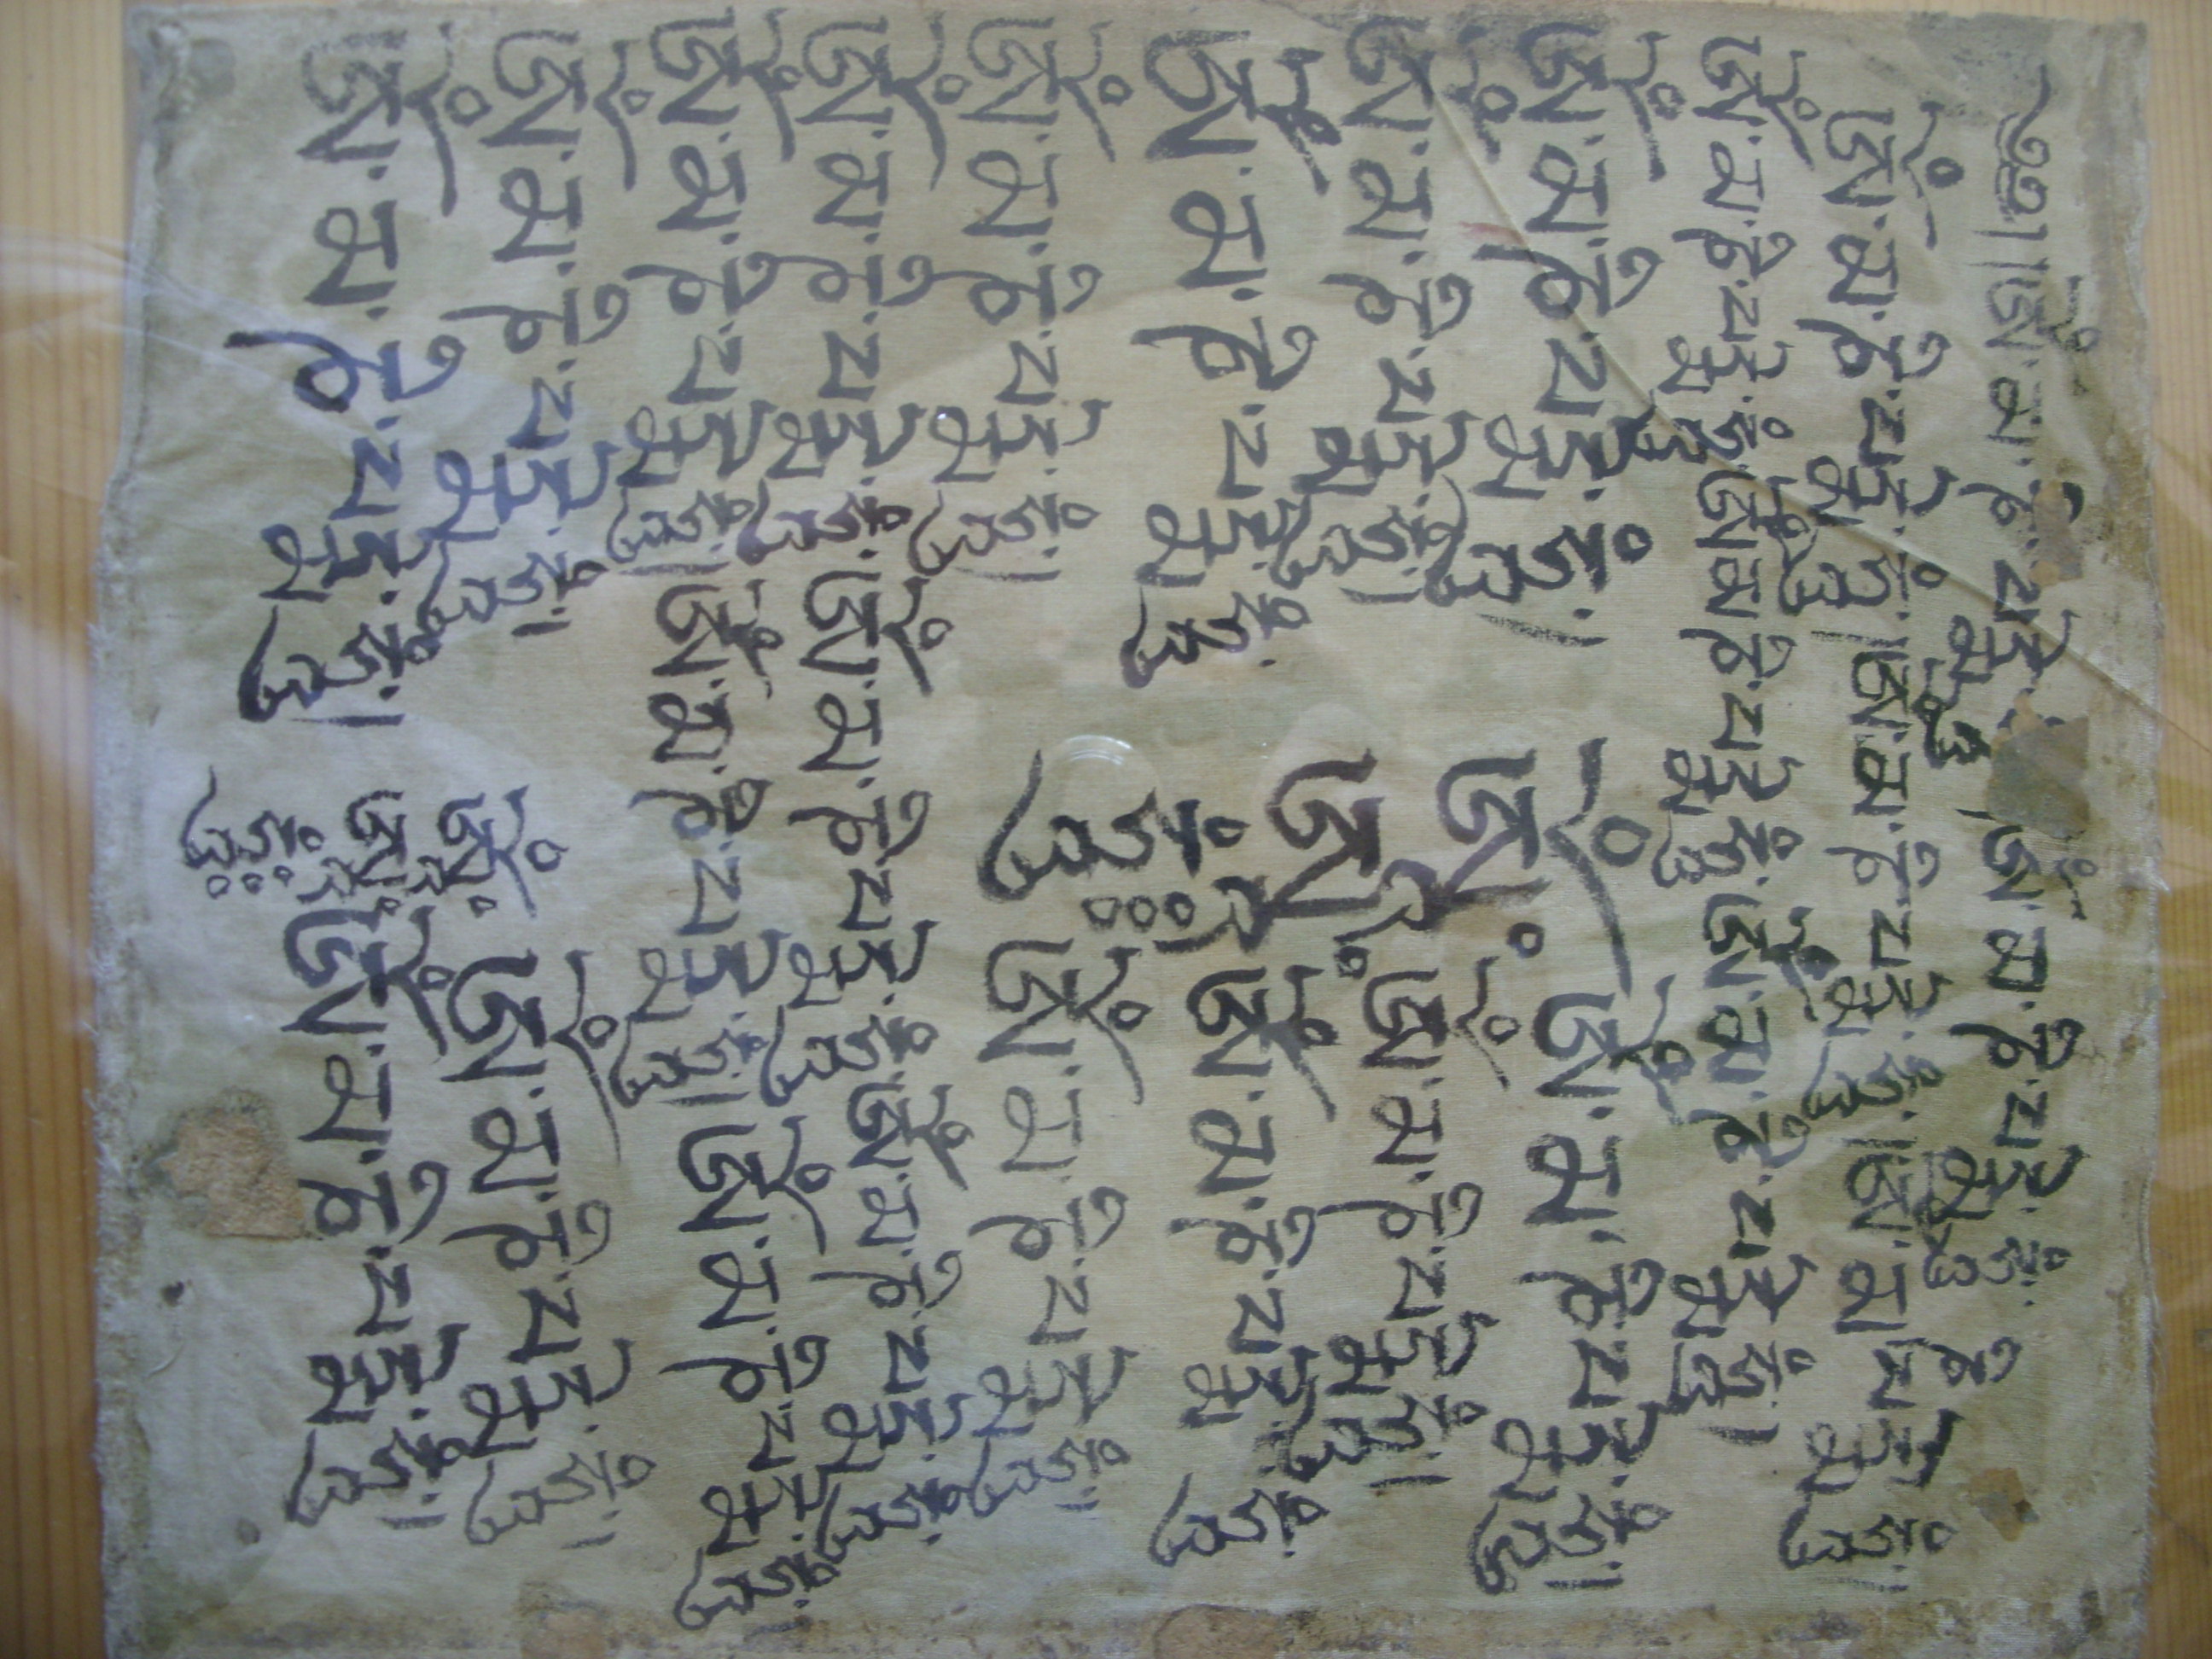 ༄༅།།ཨོཾ་མ་ཎི་པདྨེ་ཧཱུྃ།ཨོཾ་མ་ཎི་པདྨེ་ཧཱུྃ་
ཨོཾ་མ་ཎི་པདྨེ་ཧཱུྃ།ཨོཾ་མ་ཎི་པདྨེ་ཧཱུྃ།ཨོཾ་མ་ཎི་པདྨེ་ཧཱུྃ།
ཨོཾ་མ་ཎི་པདྨེ་ཧཱུྃ་ཨོཾ་མ་ཎི་པདྨེ་ཧཱུྃ་ཨོཾ་མ་ཎི་པདྨེ་ཧཱུྃ།
ཨོཾ་མ་ཎི་པདྨེ་ཧཱུྃ།
ཨོཾ་མ་ཎི་པདྨེ་ཧཱུྃ།
ཨོཾ་མ་ཎི་པདྨེ་ཧཱུྃ་
ཨོཾ་མ་ཎི་པདྨེ་ཧཱུྃ།
ཨོཾཿ
ཨཱཿ
ཧཱུྃཿ
ཨོཾ་མ་ཎི་པདྨེ་ཧཱུྃ།
ཨོཾ་མ་ཎི་པདྨེ་ཧཱུྃ།
ཨོཾ་མ་ཎི་པདྨེ་ཧཱུྃ་
ཨོཾ་མ་ཎི་པདྨེ་ཧཱུྃ།
ཨོཾ་མ་ཎི་པདྨེ་ཧཱུྃ་ཨོཾ་མ་ཎི་པདྨེ་ཧཱུྃ་ཨོཾ་མ་ཎི་པདྨེ་ཧཱུྃ་
ཨོཾ་མ་ཎི་པདྨེ་ཧཱུྃ།ཨོཾ་མ་ཎི་པདྨེ་ཧཱུྃ།ཨོཾ་མ་ཎི་པདྨེ་ཧཱུྃ་
ཨོཾ་མ་ཎི་པདྨེ་ཧཱུྃ།
ཨོཾ་མ་ཎི་པདྨེ་ཧཱུྃ།
ཨོཾཿ
ཨཱཿ
ཧཱུྃཿ
ཨོཾ་མ་ཎི་པདྨེ་ཧཱུྃ།
ཨོཾ་མ་ཎི་པདྨེ་ཧཱུྃ།